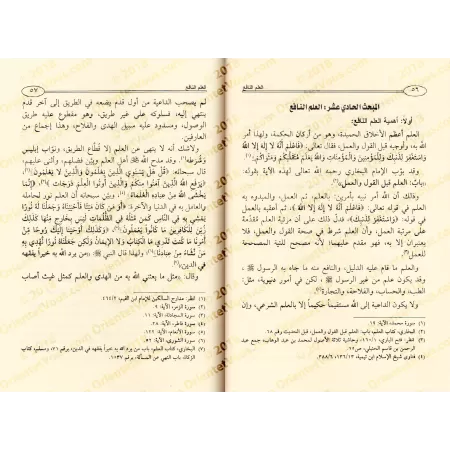 ٥٦
العلم النافع
المبحث الحادي عشر: العلم النافع
أولاً: أهمية العلم النافع:
العلم أعظم الأخلاق الحميدة، وهو من أركان الحكمة، ولهذا أمر
الله به، وأوجبه قبل القول والعمل، فقال تعالى: ﴿فَاعْلَمْ أَنَّهُ لَا إِلَهَ إِلَّا اللَّهُ
وَاسْتَغْفِرْ لِذَنبِكَ وَلِلْمُؤْمِنِينَ وَالْمُؤْمِنَاتِ وَاللَّهُ يَعْلَمُ مُتَقَلَّبَكُمْ وَمَثْوَاكُمْ﴾(١).
وقد بوّب الإمام البخاري رحمه الله تعالى لهذه الآية بقوله:
«بابٌ: العلم قبل القول والعمل»(٢).
وذلك أن الله أمر نبيه بأمرين: بالعلم، ثم العمل، والمبدوء به
العلم في قوله تعالى: ﴿فَاعْلَمْ أَنَّهُ لَا إِلَهَ إِلَّا اللَّهُ﴾، ثم أعقبه بالعمل
في قوله: ﴿وَاسْتَغْفِرْ لِذَنبِكَ﴾، فدلّ ذلك على أن مرتبة العلم مُقدَّمة
على مرتبة العمل، وأن العلم شرط في صحة القول والعمل، فلا
يعتبران إلا به، فهو مقدم عليهما؛ لأنه مصحح للنية المصححة
للعمل(٣).
والعلم ما قام عليه الدليل، والنافع منه ما جاء به الرسول ﷺ،
وقد يكون علم من غير الرسول ﷺ، لكن في أمور دنيوية، مثل:
الطب، والحساب، والفلاحة، والتجارة(٤).
ولا يكون الداعية إلى الله مستقيماً حكيماً إلا بالعلم الشرعي، وإن
(١) سورة محمد، الآية: ١٩.
(٢) البخاري، كتاب العلم، باب: العلم قبل القول والعمل، قبل الحديث رقم ٦٨.
(٤) فتاوى شيخ الإسلام ابن تيمية،
العلم النافع
٥٧
لم يصحب الداعية من أول قدم يضعه في الطريق إلى آخر قدم
ينتهي إليه، فسلوكه على غير طريق، وهو مقطوع عليه طريق
الوصول، ومسدود عليه سبيل الهدى والفلاح، وهذا إجماع من
العارفين.
ولاشك أنه لا ينهى عن العلم إلا قُطّاع الطريق، ونوّاب إبليس
وشُرطه(١). وقد مدح الله ﷻ أهل العلم وبيّن فضلهم، وأثنى عليهم،
قال سبحانه: ﴿قُلْ هَلْ يَسْتَوِي الَّذِينَ يَعْلَمُونَ وَالَّذِينَ لَا يَعْلَمُونَ﴾(٢)،
﴿يَرْفَعِ اللَّهُ الَّذِينَ آمَنُوا مِنكُمْ وَالَّذِينَ أُوتُوا الْعِلْمَ دَرَجَاتٍ﴾(٣)، ﴿إِنَّمَا
يَخْشَى اللَّهَ مِنْ عِبَادِهِ الْعُلَمَاءُ﴾(٤).
والعامل به في الدنيا والآخرة: ﴿أَوَ مَن كَانَ مَيْتًا فَأَحْيَيْنَاهُ وَجَعَلْنَا لَهُ نُورًا
يَمْشِي بِهِ فِي النَّاسِ كَمَن مَّثَلُهُ فِي الظُّلُمَاتِ لَيْسَ بِخَارِجٍ مِّنْهَا كَذَلِكَ
زُيِّنَ لِلْكَافِرِينَ مَا كَانُوا يَعْمَلُونَ﴾(٥)، ﴿وَكَذَلِكَ أَوْحَيْنَا إِلَيْكَ رُوحًا مِّنْ
أَمْرِنَا مَا كُنتَ تَدْرِي مَا الْكِتَابُ وَلَا الْإِيمَانُ وَلَكِن جَعَلْنَاهُ نُورًا نَّهْدِي بِهِ
مَنْ نَّشَاءُ مِنْ عِبَادِنَا﴾(٦). ولهذا قال النبي ﷺ: «من يرد الله به خيراً يفقهه
في الدين»(٧).
وقال: «مثل ما بعثني الله به من الهدى والعلم كمثل غيث أصاب
(١) انظر: مدارج السالكين للإمام ابن القيم،
(٢) سورة الزمر، الآية: ٩.
(٣) سورة المجادلة، الآية: ١١.
(٤) سورة فاطر، الآية: ٢٨.
(٥) سورة الأنعام، الآية: ١٢٢.
(٦) سورة الشورى، الآية: ٥٢.
(٧) البخاري، كتاب العلم، باب من يرد الله به خيراً يفقهه في الدين، برقم ٧١، ومسلم، كتاب
الزكاة، باب النهي عن المسألة، برقم ١٠٣٧.